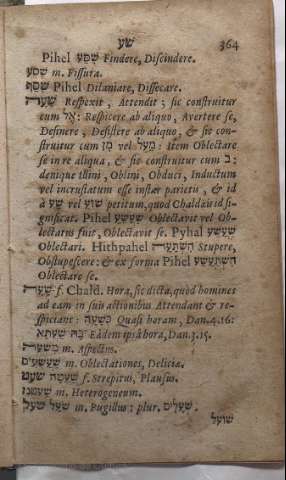 שע 364
Pihel שִׁסַּע Findere, Discindere.
שֶׁסַע m. Fissura.
שסף Pihel Dilaniare, Dissecare.
שעה Respexit, Attendit; sic construitur
cum אֶל: Respicere ab aliquo, Avertere se,
Desinere, Desistere ab aliquo, & sic con-
struitur cum מִן vel מֵעַל: Item Oblectare
se in re aliqua, & sic construitur cum ב:
denique illini, Oblini, Obduci, Inductum
vel incrustatum esse instar parietis, & id
à שע vel שוע petitum, quod Chaldæis id si-
gnificat. Pihel שעשע Oblectavit vel Ob-
lectatus fuit, Oblectavit se. Pyhal שעשע
Oblectari. Hithpahel השתעה Stupere,
Obstupescere: & ex forma Pihel השתעשע
Oblectare se.
שעה f. Chald. Hora, sic dicta, quòd homines
ad eam in suis actionibus Attendant & re-
spiciant: כשעה Quasi horam, Dan. 4. 16:
בה שעתא Eâdem ipsâ hora, Dan. 3. 15.
משעה m. Aspectus.
שעשעים m. Oblectationes, Deliciæ.
שעט שעטה f. Strepitus, Plausus.
שעטנז m. Heterogeneum.
שעל שעל m. Pugillus: plur. שעלים.
שועל